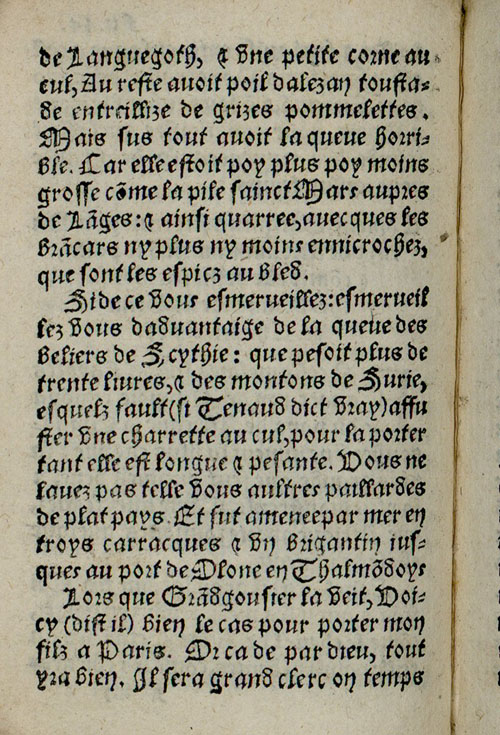 de Languegoth, & vne petite corne au
cul, Au reste auoit poil dalezan toustta-
de entreillize de grizes pommelettes.
Mais sus tout auoit la queue horri-
ble. Car elle estoit poy plus poy moins
grosse cõme la pile sainct Mars aupres
de Lãges: & ainsi quarree, auecques les
brãcars ny plus ny moins ennicrochez,
que sont les espicz au bled.
Si de ce vous esmerueillez: esmerueil
lez vous daduantaige de la queue des
beliers de Scythie: que pesoit plus de
trente liures, & des moutons de Surie,
esquelz fault (si Tenaud dict vray) affu
ster vne charrette au cul, pour la porter
tant elle est longue & pesante. Vous ne
lauez pas telle vous aultres paillardes
de plat pays. Et fut amenee par mer en
troys carracques & vn brigantin ius-
ques au port de Olone en Thalmõdoys
Lors que Grãdgousier la veit, Voi-
cy (dist il) bien le cas pour porter mon
filz a Paris. Or ca de par dieu, tout
yra bien. Il sera grand clerc on temps